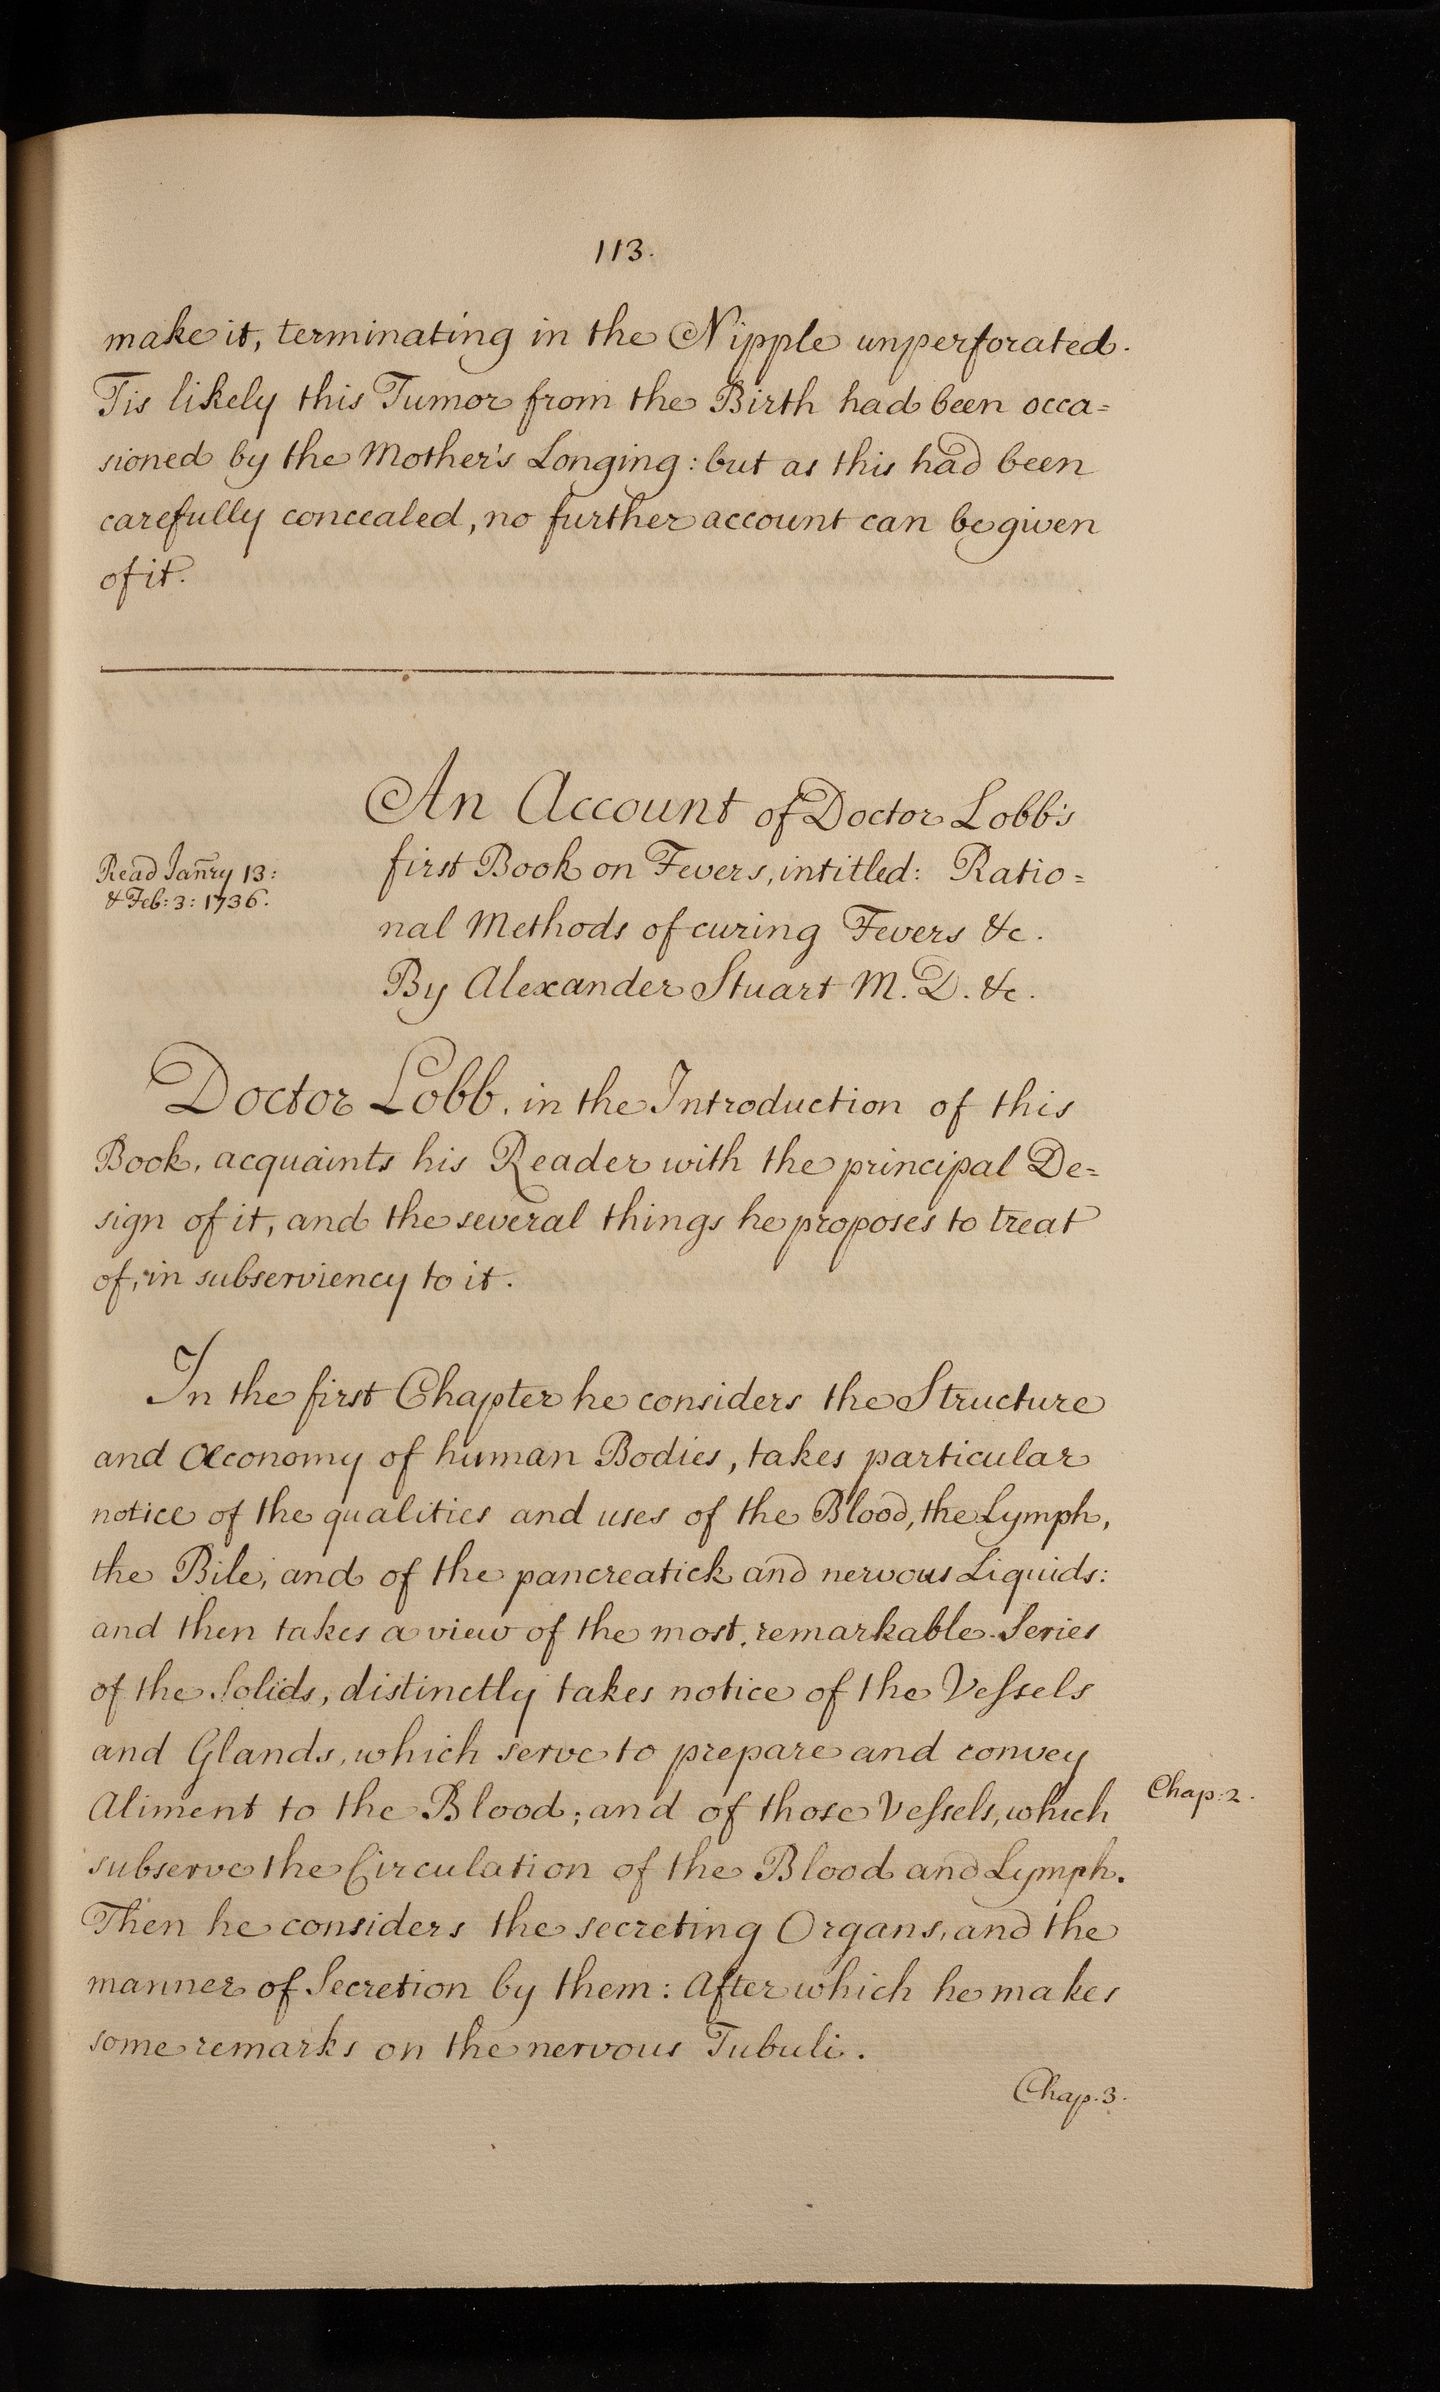 113.
make it, terminating in the Nipple unperforated.
Tis likely this Tumor from the Birth had been occa=
sioned by the Mother's Longing: but as this had been
carefully concealed, no further account can be given
of it.
An Account of Doctor Lobb's
first Book on Fevers, intitled: Ratio=
nal Methods of curing Fevers &c.
By Alexander Stuart M.D. &c.
Read Janry 13:
& Feb: 3: 1736.
Doctor Lobb, in the Introduction of this
Book, acquaints his Reader with the principal De=
sign of it, and the several things he proposes to treat
of, in subserviency to it.
In the first Chapter he considers the Structure
and Œconomy of human Bodies, takes particular
notice of the qualities and uses of the Blood, the Lymph,
the Bile, and of the pancreatick and nervous Liquids:
and then takes a view of the most remarkable Series
of the Solids, distinctly takes notice of the Veſsels
and Glands, which serve to prepare and convey
Aliment to the Blood; and of those Veſsels, which
Chap: 2.
subserve the Circulation of the Blood and Lymph.
Then he considers the secreting Organs, and the
manner of Secretion by them: After which he makes
some remarks on the nervous Tubuli.
Chap. 3.